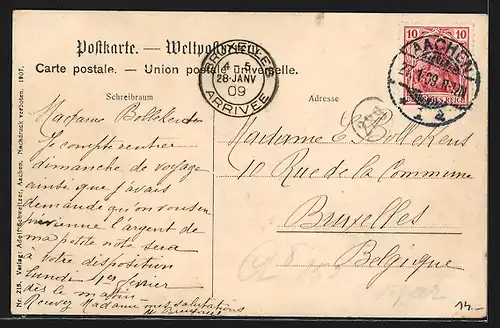 Postkarte. — Weltpostverein.
Carte postale. — Union postale universelle.
Schreibraum
Adresse
Nr. 215. Verlag: Adolf Schweitzer, Aachen. Nachdruck verboten. 1907.
BRUXELLES
4 - 5
28 JANV
09
ARRIVÉE
10 10
AACHEN
DEUTSCHES REICH
Madame
Je compte rentrer
dimanche de voyage
ainsi que j'avais
demandé qu'on vous en
prévienne l'argent de
ma petite note sera
à votre disposition
lundi 1er février
dès le matin
Recevez Madame mes salutations
Madame E. Bollekens
10 Rue de la Commune
Bruxelles
Belgique
14.-